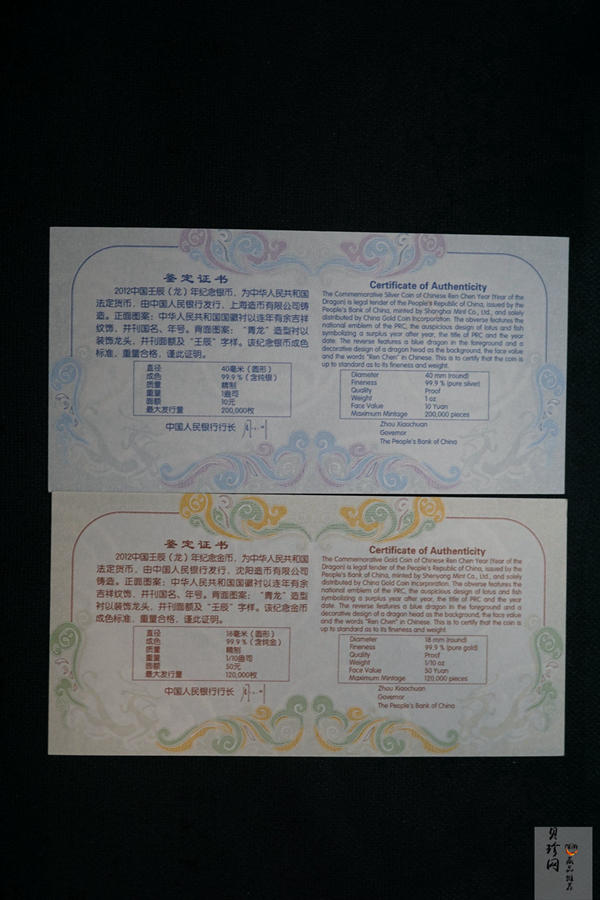 鉴定证书
2012中国壬辰（龙）年纪念银币，为中华人民共和国
法定货币，由中国人民银行发行，上海造币有限公司铸
造。正面图案：中华人民共和国国徽衬以连年有余吉祥
纹饰，并刊国名、年号。背面图案：“青龙”造型衬以
装饰龙头，并刊面额及“壬辰”字样。该纪念银币成色
标准，重量合格，谨此证明。
直径 40毫米（圆形）
成色 99.9％（含纯银）
质量 精制
重量 1盎司
面额 10元
最大发行量 200,000枚
中国人民银行行长
Certificate of Authenticity
The Commemorative Silver Coin of Chinese Ren Chen Year (Year of the
Dragon) is legal tender of the People's Republic of China, issued by the
People's Bank of China, minted by Shanghai Mint Co., Ltd., and solely
distributed by China Gold Coin Incorporation. The obverse features the
national emblem of the PRC, the auspicious design of lotus and fish
symbolizing a surplus year after year, the title of PRC and the year
date. The reverse features a blue dragon in the foreground and a
decorative design of a dragon head as the background, the face value
and the words "Ren Chen" in Chinese. This is to certify that the coin is
up to standard as to its fineness and weight.
Diameter 40 mm (round)
Fineness 99.9 % (pure silver)
Quality Proof
Weight 1 oz
Face Value 10 Yuan
Maximum Mintage 200,000 pieces
Zhou Xiaochuan
Governor
The People's Bank of China
鉴定证书
2012中国壬辰（龙）年纪念金币，为中华人民共和国
法定货币，由中国人民银行发行，沈阳造币有限公司
铸造。正面图案：中华人民共和国国徽衬以连年有余
吉祥纹饰，并刊国名、年号。背面图案：“青龙”造型
衬以装饰龙头，并刊面额及“壬辰”字样。该纪念金币
成色标准，重量合格，谨此证明。
直径 18毫米（圆形）
成色 99.9％（含纯金）
质量 精制
重量 1/10盎司
面额 50元
最大发行量 120,000枚
中国人民银行行长
Certificate of Authenticity
The Commemorative Gold Coin of Chinese Ren Chen Year (Year of the
Dragon) is legal tender of the People's Republic of China, issued by the
People's Bank of China, minted by Shenyang Mint Co., Ltd., and solely
distributed by China Gold Coin Incorporation. The obverse features the
national emblem of the PRC, the auspicious design of lotus and fish
symbolizing a surplus year after year, the title of PRC and the year
date. The reverse features a blue dragon in the foreground and a
decorative design of a dragon head as the background, the face value
and the words "Ren Chen" in Chinese. This is to certify that the coin is
up to standard as to its fineness and weight.
Diameter 18 mm (round)
Fineness 99.9 % (pure gold)
Quality Proof
Weight 1/10 oz
Face Value 50 Yuan
Maximum Mintage 120,000 pieces
Zhou Xiaochuan
Governor
The People's Bank of China
贝珍网